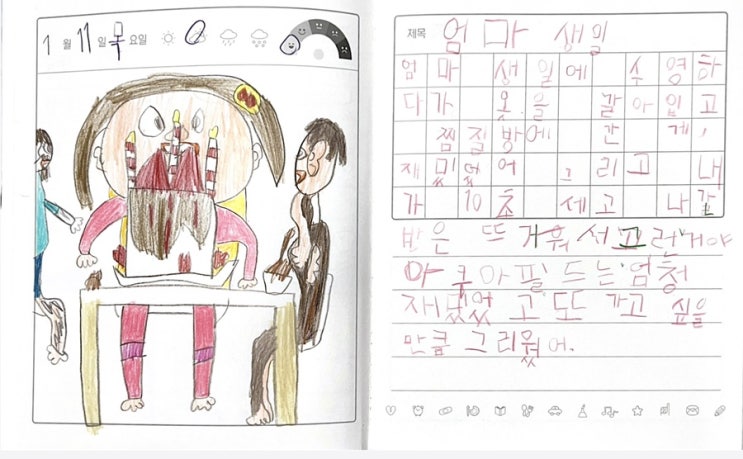 1월 11일 목요일
제목 엄마 생일
엄마 생일에 수영하
다가 옷을 갈아입고
찜질방에 간 게,
재밌었어 그리고 내
가 10초 세고 나갈
받은 뜨거워서 그러는거야
아쿠아필드는 엄청
재밌었고 또 가고 싶을
만큼 그리웠어.